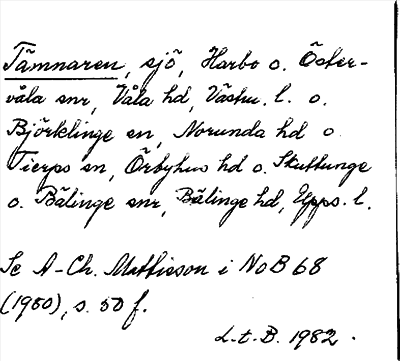 Tämnaren, sjö, Harbo o. Öster-
våla snr, Våla hd, Västm. l. o.
Björklinge sn, Norunda hd o
Tierps sn, Örbyhus hd o. Skuttunge
o. Bälinge snr, Bälinge hd, Upps. l.
Se A-Ch. Mattisson i NoB 68
(1980), s. 50 f.
L.t.B. 1982.